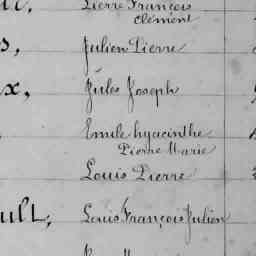 Pierre François
clément
Julien Pierre
Jules Joseph
Emile hyacinthe
Pierre Marie
Louis Pierre
ult, Louis François Julien